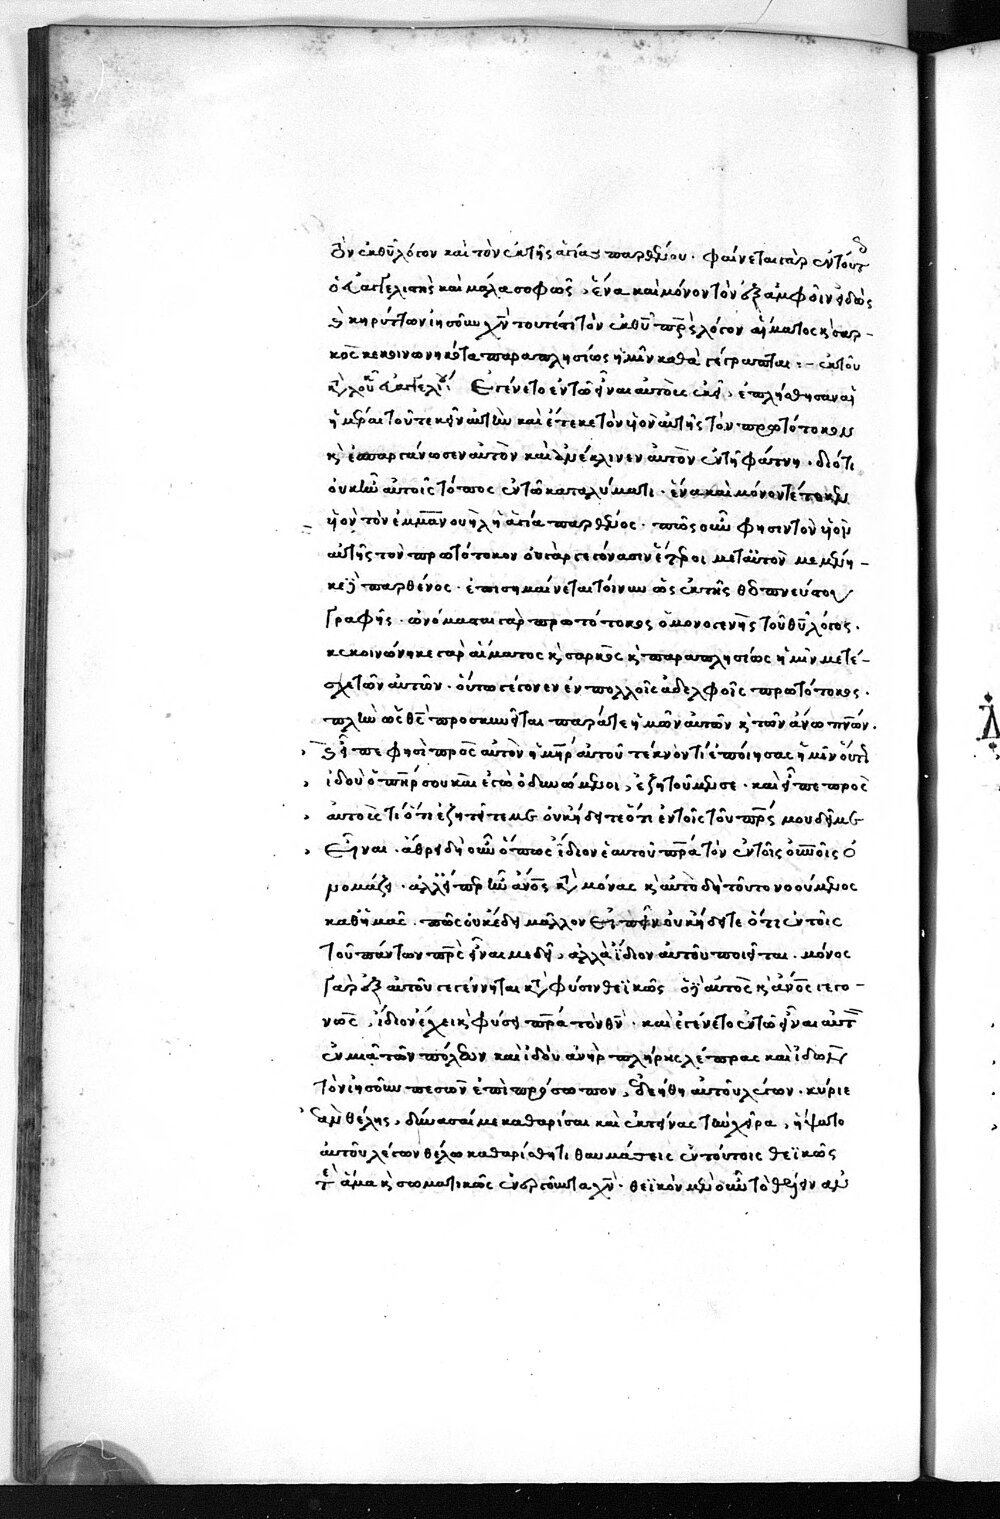 ὃν ἐκ θῦ λόγον καὶ τὸν ἐκ τῆς ἁγίας παρθένου. φαίνεται γὰρ ἐν τούτ
ὁ εὐαγγελιστὴς καὶ μάλα σοφῶς, ἕνα καὶ μόνον τὸν ἐξ ἀμφοῖν εἰδὼς
κ κηρύττων ἰησοῦν χν τουτέστι τὸν ἐκ θῦ πρς λόγον αἵματος κ σαρ-
κὸς κεκοινωνηκότα παραπλησίως ἡμῖν καθὰ γέγραπται :- ἐκ τοῦ
κτ λουκ εὐαγγελί Ἐγένετο ἐν τῶ εἶναι αὐτοὺς ἐκεῖ, ἐπλήσθησαν αἱ
ἡμέραι τοῦ τεκεῖν αὐτὴν καὶ ἔτεκε τὸν υἱὸν αὐτῆς τὸν πρωτότοκον
κ ἐσπαργάνωσεν αὐτὸν καὶ ἀνέκλινεν αὐτὸν ἐν τῆ φάτνη. διότι
οὐκ ἦν αὐτοῖς τόπος ἐν τῶ καταλύματι. ἕνα καὶ μόνον τέτοκεν
υἱὸν τὸν ἐμμανουὴλ ἡ ἁγία παρθένος. πῶς οὖν φησιν τὸν υἱὸν
αὐτῆς τὸν πρωτότοκον οὐ γὰρ γεγόνασιν ἕτεροι μετ αὐτὸν μεμένη-
κε παρθένος. ἐπισημαίνεται τοίνυν ὡς ἐκ τῆς θεοπνεύστου
γραφῆς. ὠνόμασται γὰρ πρωτότοκος ὁ μονογενὴς τοῦ θῦ λόγος.
κεκοινώνηκε γὰρ αἵματος κ σαρκὸς κ παραπλησίως ἡμῖν μετέ-
σχε τῶν αὐτῶν. οὕτω γέγονεν ἐν πολλοῖς ἀδελφοῖς πρωτότοκος.
πλὴν ὡς θς προσκυνεῖται παρά τε ἡμῶν αὐτῶν κ τῶν ἄνω πνάτων.
κ εἶπε φησὶ πρὸς αὐτὸν ἡ μηρ αὐτοῦ τέκνον τί ἐποίησας ἡμῖν οὕτω
ἰδοὺ ὁ πηρ σου καὶ ἐγὼ ὀδυνώμενοι, ἐζητοῦμέν σε. καὶ εἶπε πρὸς
αὐτοὺς τί ὅτι ἐζητεῖτέ με οὐκ ἤδητε ὅτι ἐν τοῖς τοῦ πρς μου δεῖ με
εἶναι. ἄθρει δὴ οὖν ὅπως ἴδιον ἑαυτοῦ πρα τὸν ἐν τοῖς οὐνοῖς ὀ
νομάζει.
καθ ἡμᾶς. πῶς οὐκ ἔδει μᾶλλον εἰπεῖν οὐκ ᾔδητε ὅτι ἐν τοῖς
τοῦ πάντων πρς εἶναί με δεῖ, ἀλλὰ ἴδιον αὐτοῦ ποιεῖται. μόνος
γὰρ ἐξ αὐτοῦ γεγέννηται κτ φύσιν θεϊκῶς κ ανος γεγο-
νὼς, ἴδιον ἔχει κ φύσει πρα τὸν θν. καὶ ἐγένετο ἐν τῶ εἶναι αὐτ
ἐν μιᾶ τῶν πόλεων καὶ ἰδοὺ ἀνὴρ πλήρης λέπρας καὶ ἰδὼν
τὸν ἰησοῦν πεσὼν ἐπὶ πρόσωπον, ἐδεήθη αὐτοῦ λέγων. κύριε
ἐὰν θέλης, δύνασαί με καθαρίσαι καὶ ἐκτείνας τὴν χεῖρα, ἥψατο
αὐτοῦ λέγων θέλω καθαρίσθητι θαυμάσεις ἐν τούτοις θεϊκῶς
τε ἅμα κ σωματικῶς ἐνεργοῦντα χν. θεϊκὸν μὲν οὖν τὸ θέλειν